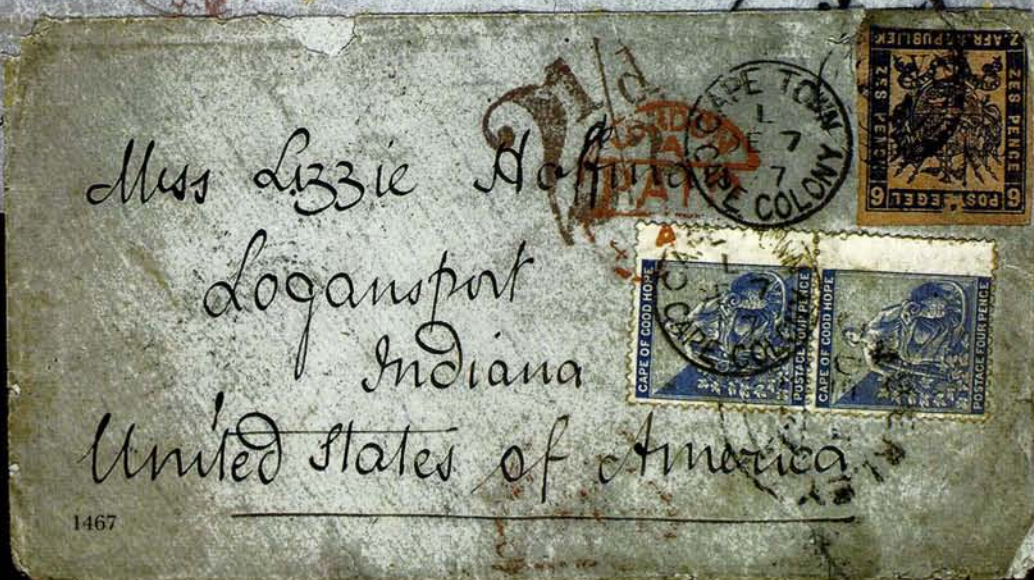 Miss Lizzie Hoffman
Logansport
Indiana
United States of America
1467
2½d
CAPE TOWN
L
DE 7
7
CAPE COLONY
PAID
Z. AFR. REPUBLIEK
ZES PENCE
ZES PENCE
6 POSTZEGEL 6
CAPE OF GOOD HOPE
POSTAGE FOUR PENCE
CAPE OF GOOD HOPE
POSTAGE FOUR PENCE
CAPE COLONY